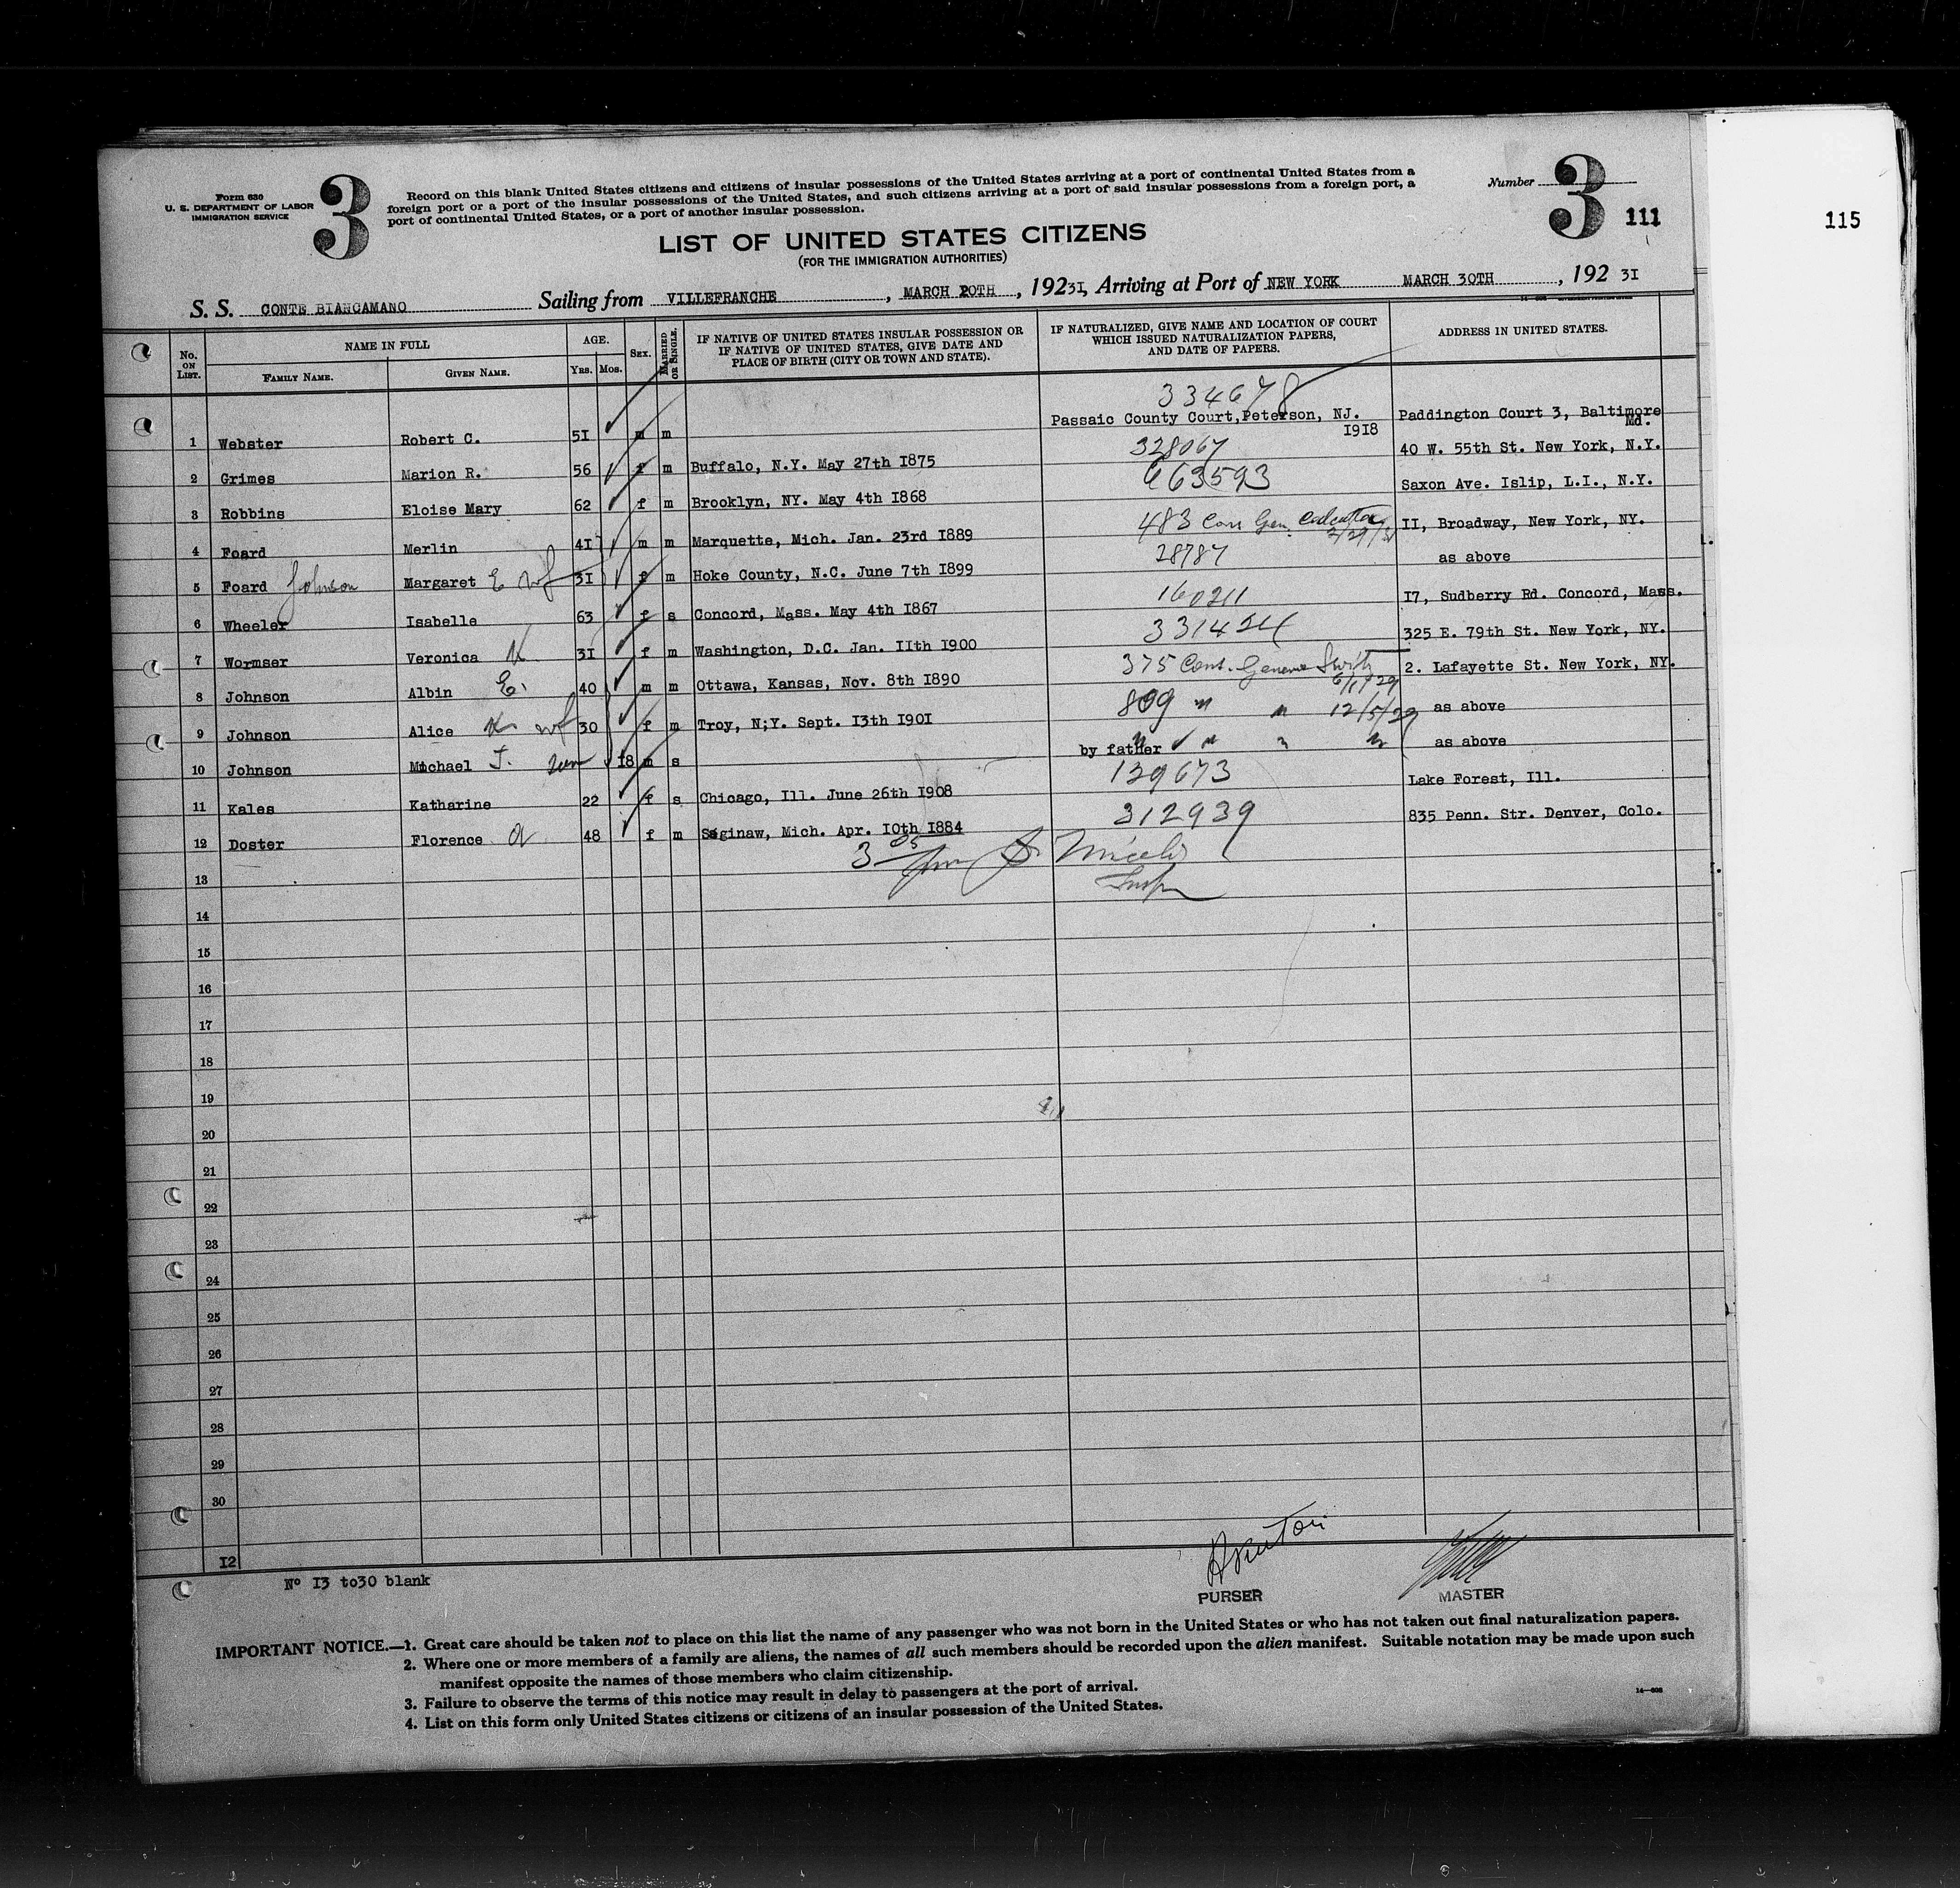 Form 630
U. S. DEPARTMENT OF LABOR
IMMIGRATION SERVICE
3
Record on this blank United States citizens and citizens of insular possessions of the United States arriving at a port of continental United States from a
foreign port or a port of the insular possessions of the United States, and such citizens arriving at a port of said insular possessions from a foreign port, a
port of continental United States, or a port of another insular possession.
Number
3
111
115
LIST OF UNITED STATES CITIZENS
(FOR THE IMMIGRATION AUTHORITIES)
S. S. CONTE BIANCAMANO Sailing from VILLEFRANCHE, MARCH 20TH, 19231, Arriving at Port of NEW YORK MARCH 30TH, 192 31
No. ON LIST. NAME IN FULL AGE. SEX. MARRIED OR SINGLE. IF NATIVE OF UNITED STATES INSULAR POSSESSION OR IF NATIVE OF UNITED STATES, GIVE DATE AND PLACE OF BIRTH (CITY OR TOWN AND STATE). IF NATURALIZED, GIVE NAME AND LOCATION OF COURT WHICH ISSUED NATURALIZATION PAPERS, AND DATE OF PAPERS. ADDRESS IN UNITED STATES.
FAMILY NAME. GIVEN NAME. YRS. MOS.
334678
1 Webster Robert C. 51 m m Passaic County Court,Peterson, NJ. 1918 Paddington Court 3, Baltimore Md.
2 Grimes Marion R. 56 f m Buffalo, N.Y. May 27th 1875 328067 40 W. 55th St. New York, N.Y.
3 Robbins Eloise Mary 62 f m Brooklyn, NY. May 4th 1868 663593 Saxon Ave. Islip, L.I., N.Y.
4 Foard Merlin 41 m m Marquette, Mich. Jan. 23rd 1889 483 Con Gen. Calcutta II, Broadway, New York, NY.
5 Foard Johnson Margaret E wf 31 f m Hoke County, N.C. June 7th 1899 28787 as above
6 Wheeler Isabelle 63 f s Concord, Mass. May 4th 1867 160211 17, Sudberry Rd. Concord, Mass.
7 Wormser Veronica 31 f m Washington, D.C. Jan. 11th 1900 325 E. 79th St. New York, NY.
8 Johnson Albin E. 40 m m Ottawa, Kansas, Nov. 8th 1890 375 Cons. Geneva 2. Lafayette St. New York, NY.
9 Johnson Alice wf 30 f m Troy, N;Y. Sept. 13th 1901 809 " " 12/5/29 as above
10 Johnson Michael J. son 18 m s by father " " " as above
11 Kales Katharine 22 f s Chicago, Ill. June 26th 1908 129673 Lake Forest, Ill.
12 Doster Florence 48 f m Saginaw, Mich. Apr. 10th 1884 312939 835 Penn. Str. Denver, Colo.
13
14
15
16
17
18
19
20
21
22
23
24
25
26
27
28
29
30
12
Nº 13 to30 blank
PURSER
MASTER
IMPORTANT NOTICE.—1. Great care should be taken not to place on this list the name of any passenger who was not born in the United States or who has not taken out final naturalization papers.
2. Where one or more members of a family are aliens, the names of all such members should be recorded upon the alien manifest. Suitable notation may be made upon such
manifest opposite the names of those members who claim citizenship.
3. Failure to observe the terms of this notice may result in delay to passengers at the port of arrival.
4. List on this form only United States citizens or citizens of an insular possession of the United States.